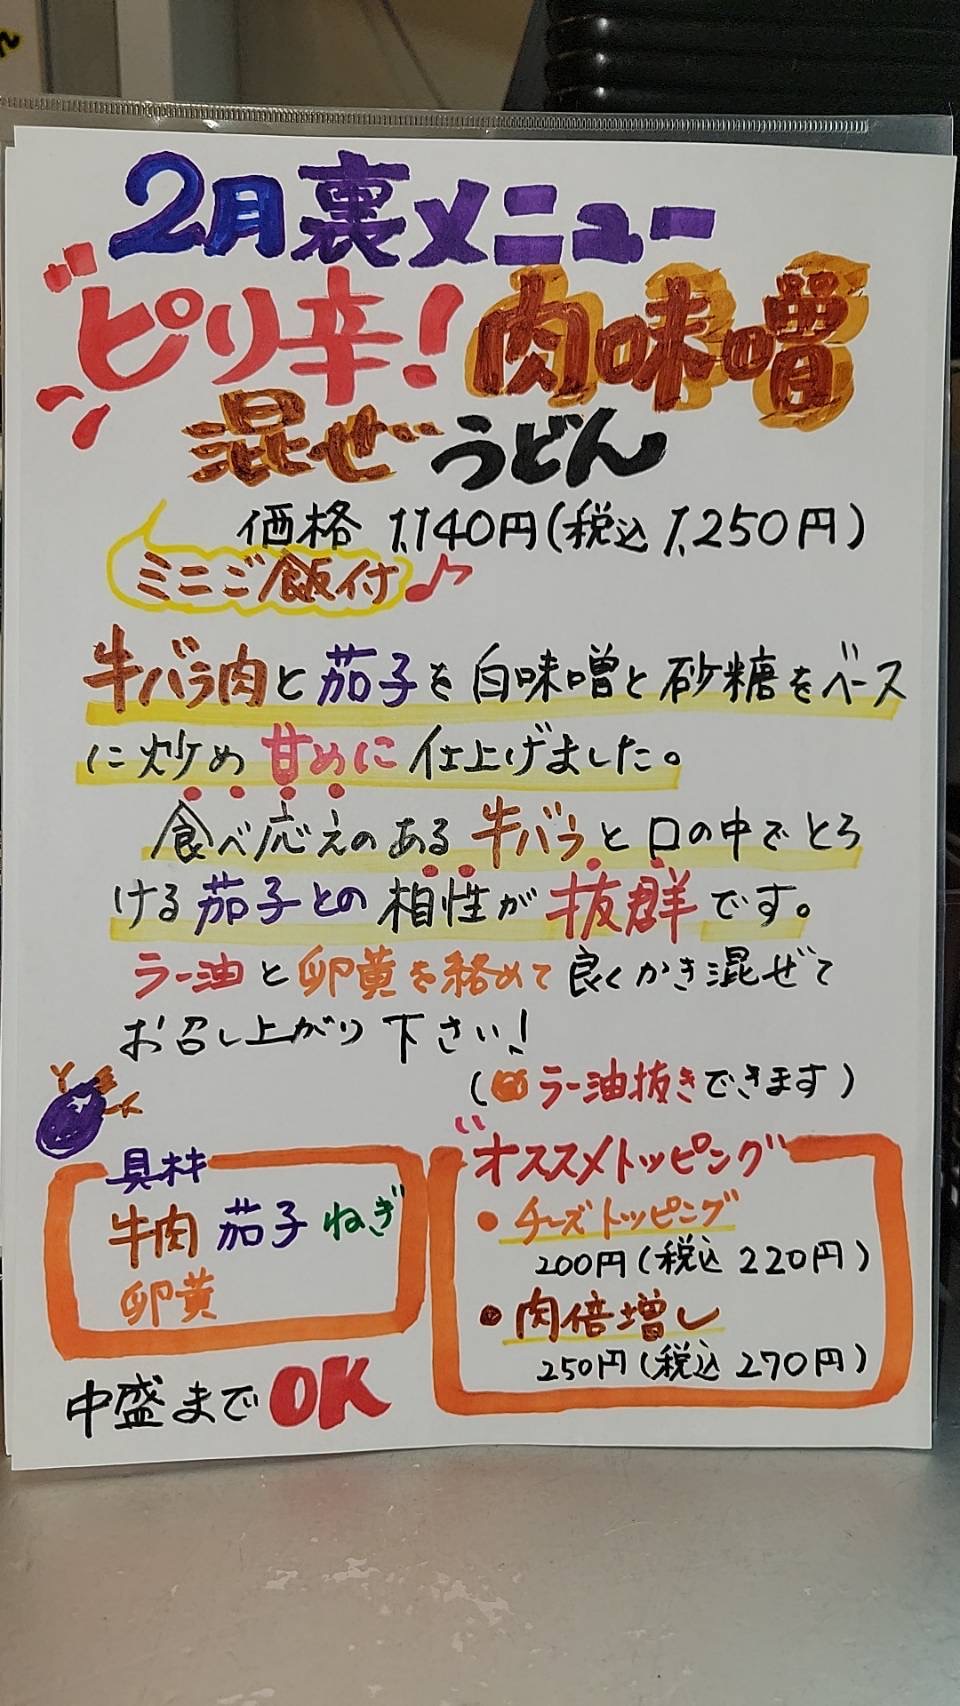 ん
2月裏メニュー
ピリ辛!肉味噌
混ぜうどん
価格 1,140円(税込 1,250円)
ミニご飯付♪
牛バラ肉と茄子を白味噌と砂糖をベース
に炒め甘めに仕上げました。
食べ応えのある牛バラと口の中でとろ
ける茄子との相性が抜群です。
ラー油と卵黄を絡めて良くかき混ぜて
お召し上がり下さい!
(ラー油抜きできます)
具材
牛肉 茄子 ねぎ
卵黄
中盛までOK
オススメトッピング
・チーズトッピング
200円(税込 220円)
・肉倍増し
250円(税込 270円)